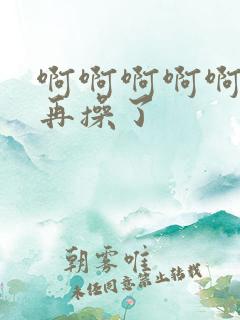 啊啊啊啊啊
再操了
朝雾唯
未经同意禁止转载